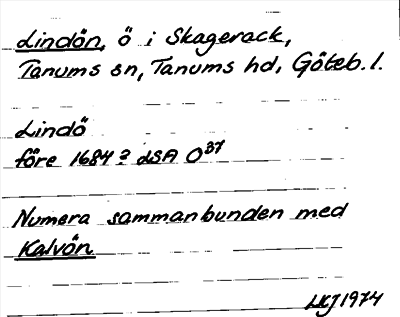 Lindön, ö i Skagerack,
Tanums sn, Tanums hd, Göteb. l.
Lindö
före 1684? LSA O37
Numera sammanbunden med
Kalvön
LHJ 1974